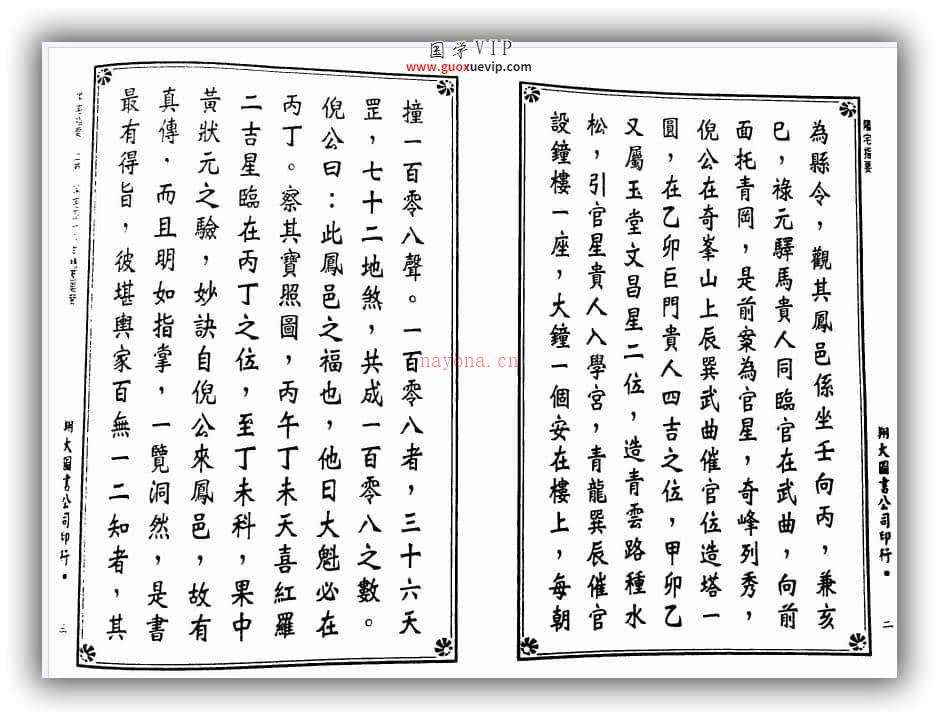 国学VIP
www.guoxuevip.com
陽宅指要
為縣令，觀其鳳邑係坐壬向丙，兼亥
巳，祿元驛馬貴人同臨官在武曲，向前
面托青岡，是前案為官星，奇峰列秀，
倪公在奇峯山上辰巽武曲催官位造塔一
圓，在乙卯巨門貴人四吉之位，甲卯乙
又屬玉堂文昌星二位，造青雲路種水
松，引官星貴人入學宮，青龍巽辰催官
設鐘樓一座，大鐘一個安在樓上，每朝
翔大圖書公司印行
二
撞一百零八聲。一百零八者，三十六天
罡，七十二地煞，共成一百零八之數。
倪公曰：此鳳邑之福也，他日大魁必在
丙丁。察其寶照圖，丙午丁未天喜紅羅
二吉星臨在丙丁之位，至丁未科，果中
黃狀元之驗，妙訣自倪公來鳳邑，故有
真傳．而且明如指掌，一覽洞然，是書
最有得旨，彼堪輿家百無一二知者，其
翔大圖書公司印行
三
nayona.cn